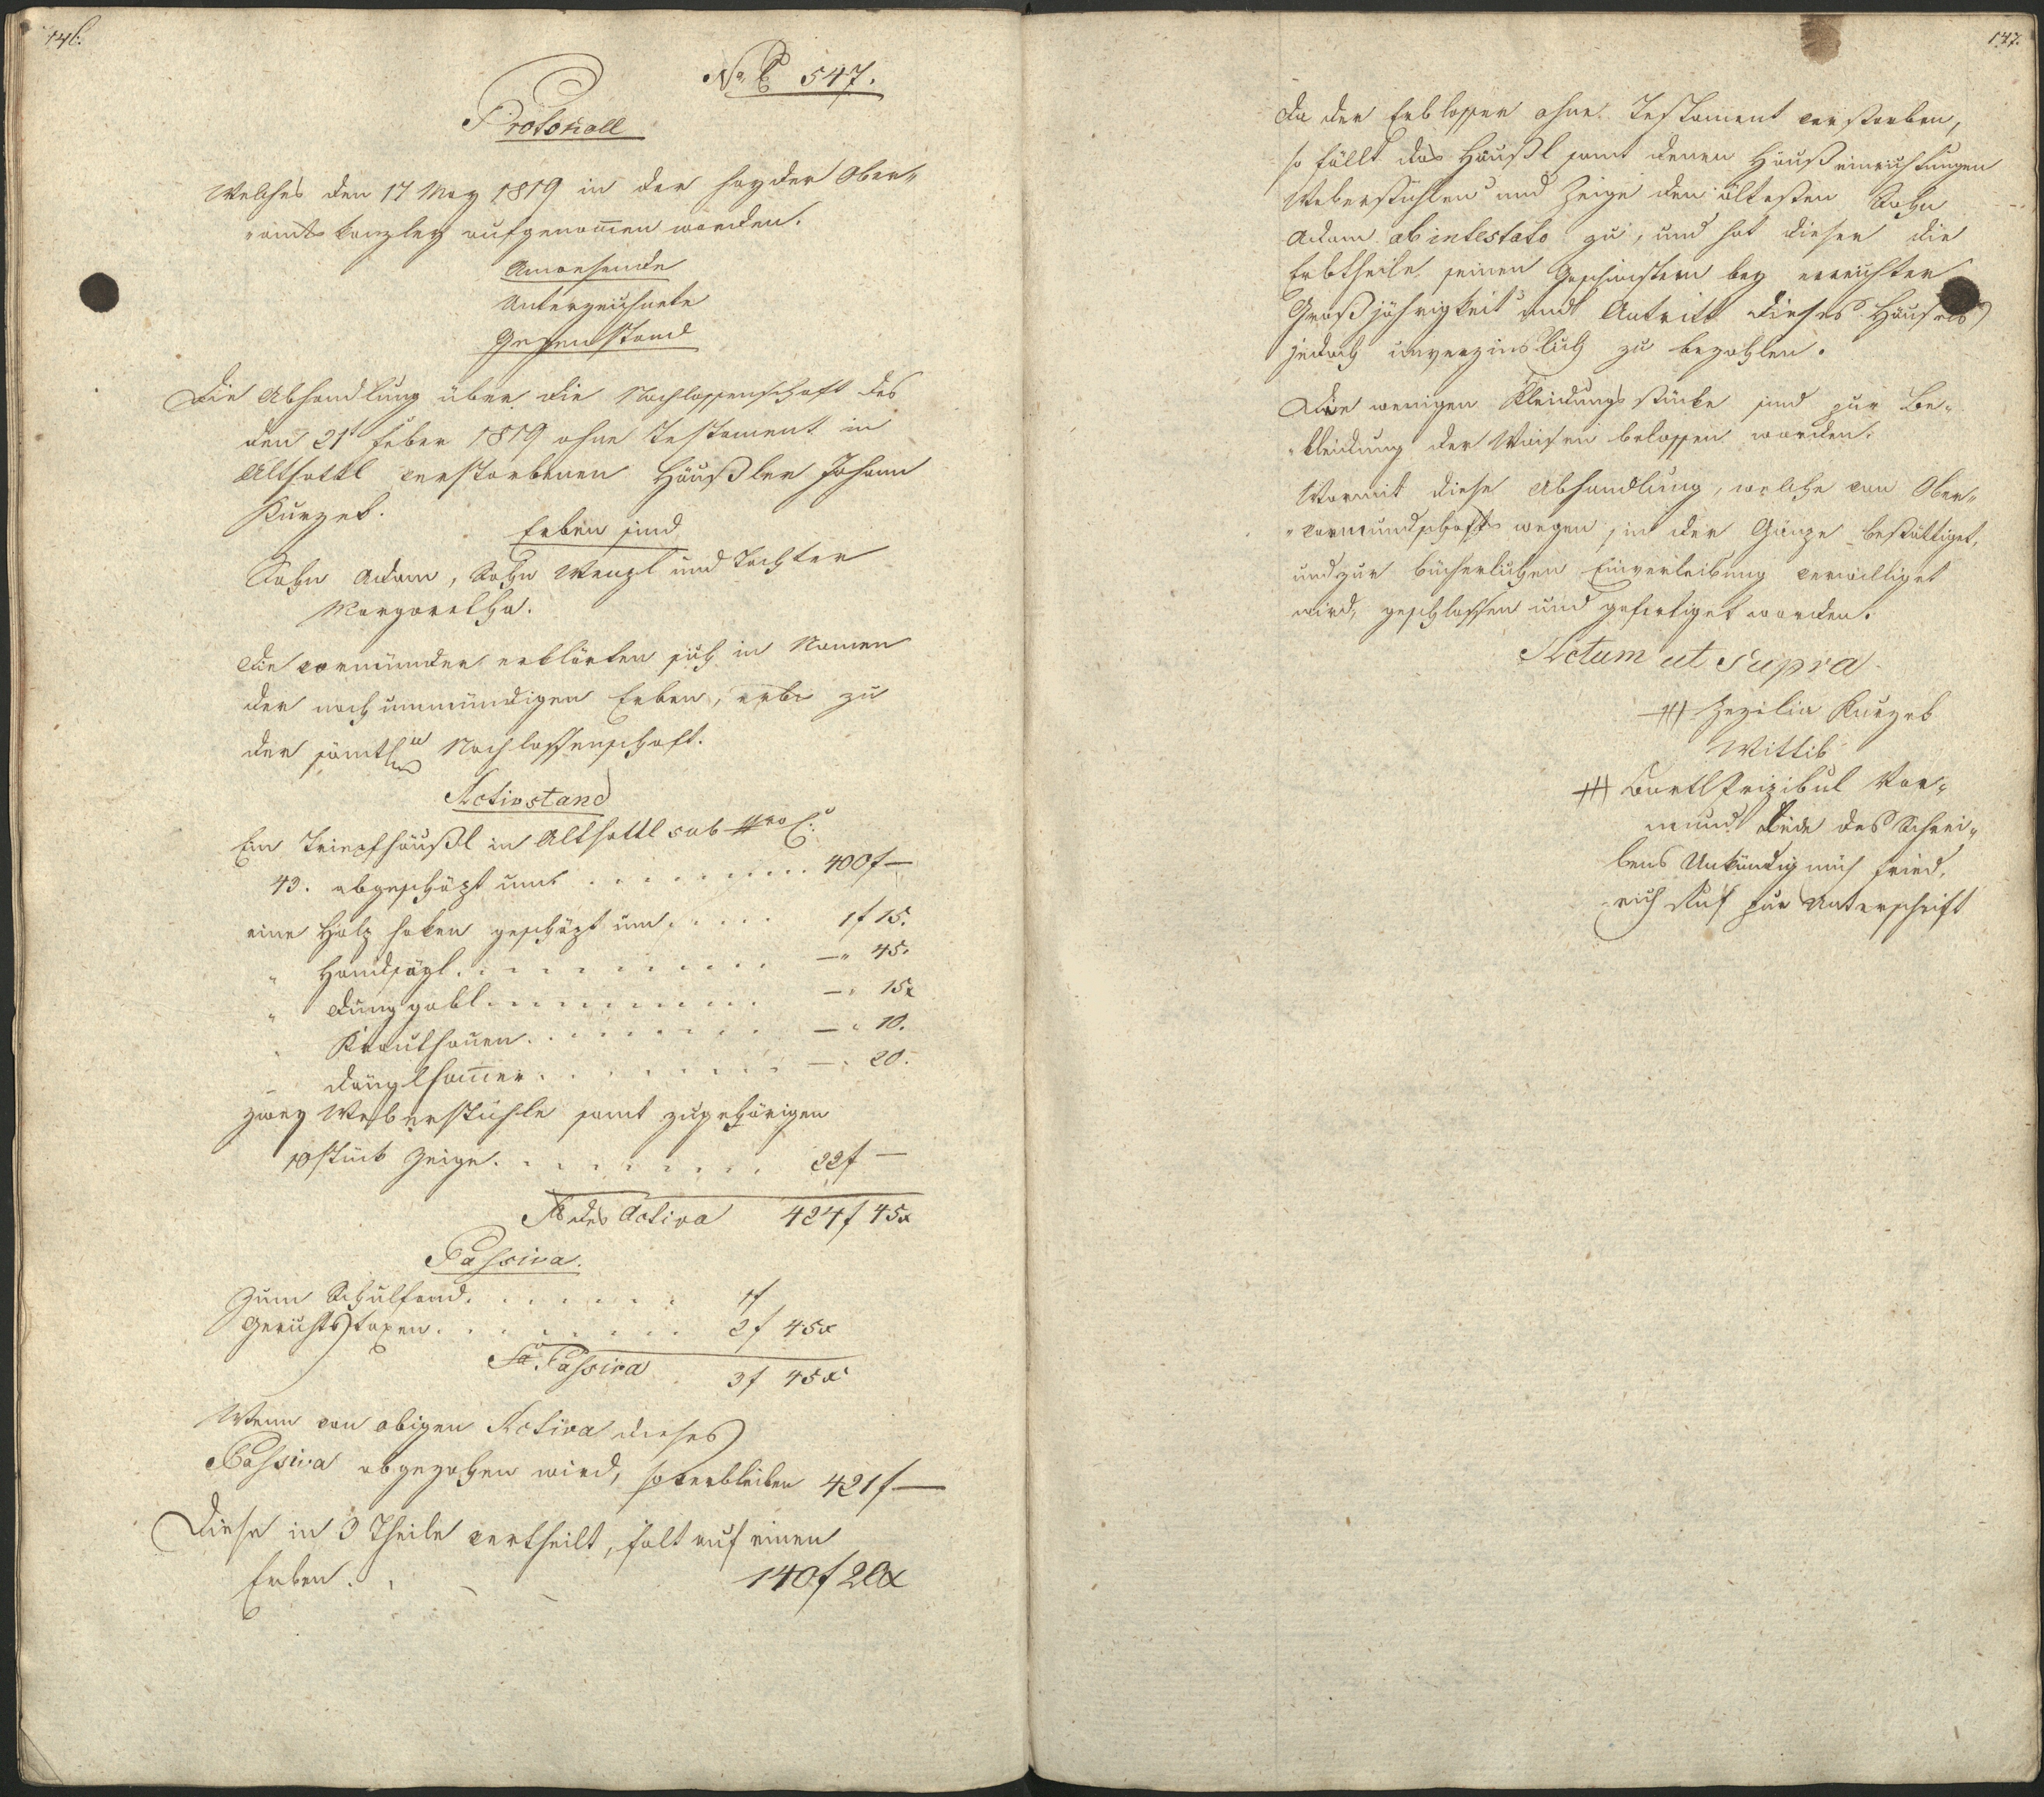 146.
No E 547.
Protokoll
Welches den 17 May 1819 in der Hayder Ober„
„amts kanzley aufgenom̅en worden.
Anwesende
Unterzeichnete
Gegenstand
Die Abhandlung über die Nachlassenschaft des
den 21t Feber 1819 ohne Testament in
Althattl verstorbenen Häußler Johann
Kurzek.
Erben sind
Sohn Adam, Sohn Wenzl und Tochter
Margaretha.
Die vormünder erklärten sich in Namen
der noch unmündigen Erben, erbs zu
der sämtl Nachlassenschaft.
Activstand
Ein Tripfhäußl in Althattl sub Nro C:
43. abgeschäzt um 400f —
eine Holz haken geschäzt um 1f 15.
„ Handsägl —„ 45.
„ Dunggabl —„ 15x
„ Krauthauen —„ 10.
„ Dänglham̅er —„ 20.
zwey Weberstühle samt zugehörigen
10 Stück Zeige 22f —
Sa des Activa 424f 45x
Passiva.
Zum Schulfond 1f
Gerichtstaxen 2f 45x
Sa Passiva 3f 45x
Wenn von obigen Activa dieses
Passiva abgezohen wird, so verbleiben 421f —
Diese in 3 Theile vertheilt, falt auf einen
Erben 140f 20x
147.
Da der Erblasser ohne Testament verstorben,
so fällt das Häußl samt denen Haußeinrichtungen
Weberstühlen und Zeige den ältesten Sohn
Adam ab intestato zu, und hat dieser die
Erbtheile seinen Geschwistern bey erreichter
Großjährigkeit und Antritt dieses Häusels
jedoch unverzinslich zu bezahlen.
Die wenigen Kleidungsstücke sind zur Be„
„kleidung der Waisen belassen worden.
Womit diese Abhandlung, welche von Ober„
„vormundschafts wegen in der Gänze bestättiget,
und zur bücherlichen Einverleibung verwilliget
wird, geschlossen und gefertiget worden.
Actum ut Supra
+++ Zezilia Kurzek
Wittib
+++ Bartl Prizibul Vor„
mund Beede des Schrei„
bens Unkündig mich Fried„
rich Ruf zur Unterschrift